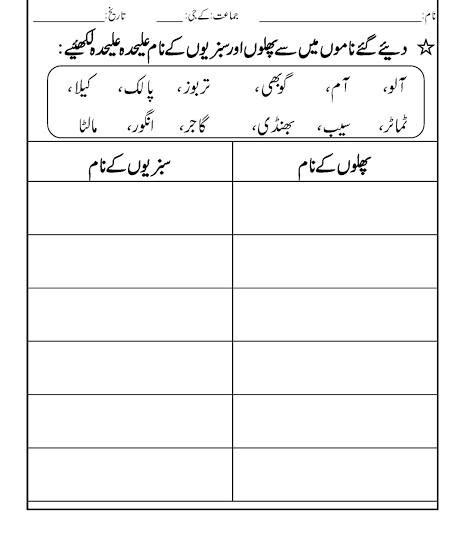 نام: جماعت: کے جی: تاریخ:
☆ دیئے گئے ناموں میں سے پھلوں اور سبزیوں کے نام علیحدہ علیحدہ لکھئیے:
آلو، آم، گوبھی، تربوز، پالک، کیلا،
ٹماٹر، سیب، بھنڈی، گاجر، انگور، مالٹا
پھلوں کے نام سبزیوں کے نام